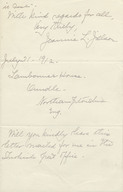 With kind regards for all
Very truly,
Jeannie L.
July 21 - 1912.
Lambourne House.
Oundle
Northamptonshire
Eng.
Will you kindly have this
letter recorded for me in the
Post Office.